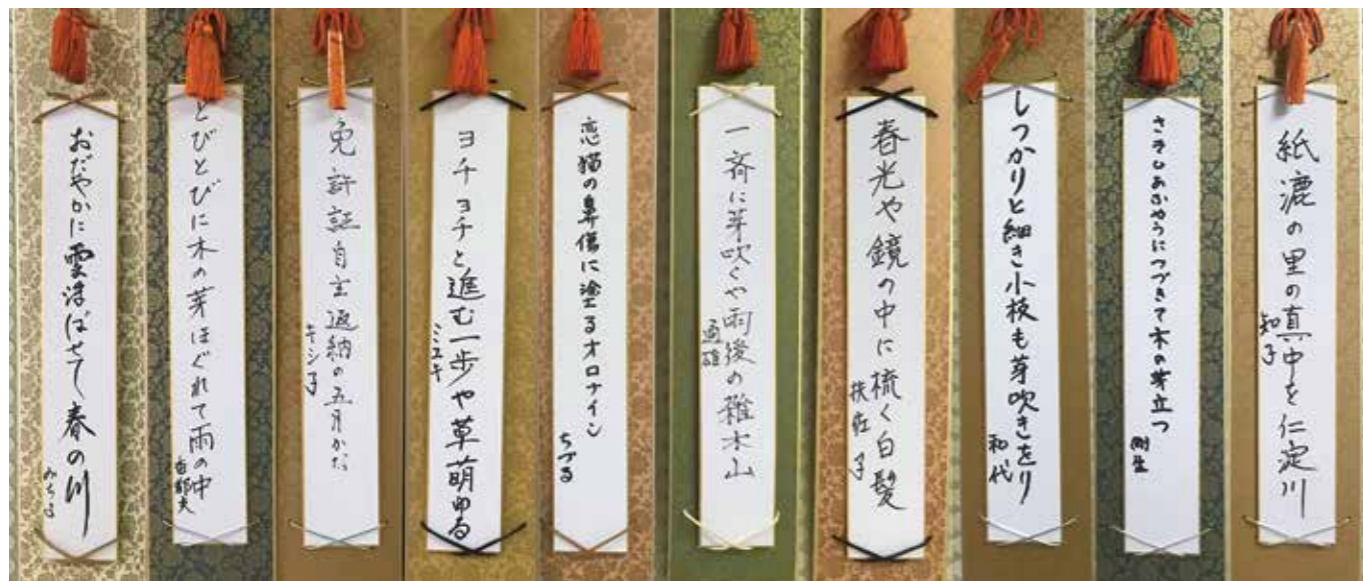 紙漉の里の真中を仁淀川
知子
やうにつづきて木の芽立つ
剛生
しつかりと細き小枝も芽吹きをり
和代
春光や鏡の中に梳く白髪
扶佐子
一斉に芽吹くや雨後の雑木山
恋猫の鼻傷に塗るオロナイン
ちづる
ヨチヨチと進む一歩や草萌ゆる
ミユキ
免許証自主返納の五月かな
キシ子
とびとびに木の芽ほぐれて雨の中
おだやかに雲浮ばせて春の川
みち子